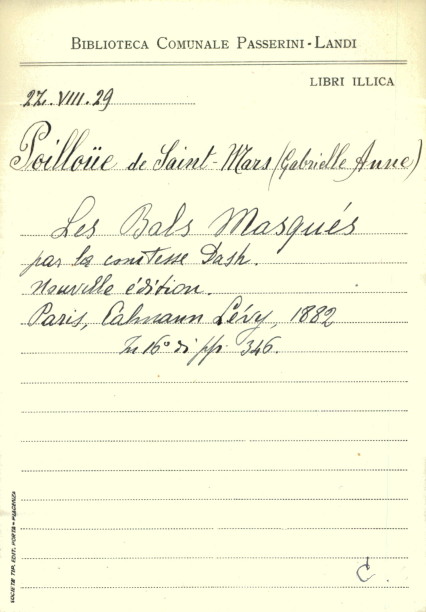 BIBLIOTECA COMUNALE PASSERINI-LANDI
LIBRI ILLICA
27.VIII.29
Poilloüe de Saint-Mars (Gabrielle Anne)
Les Bals Masqués
par la comtesse Dash.
Nouvelle édition.
Paris, Calmann Lévy, 1882
In 16° di pp. 346.
C.
SOCIETÀ TIP. EDIT. PORTA - PIACENZA